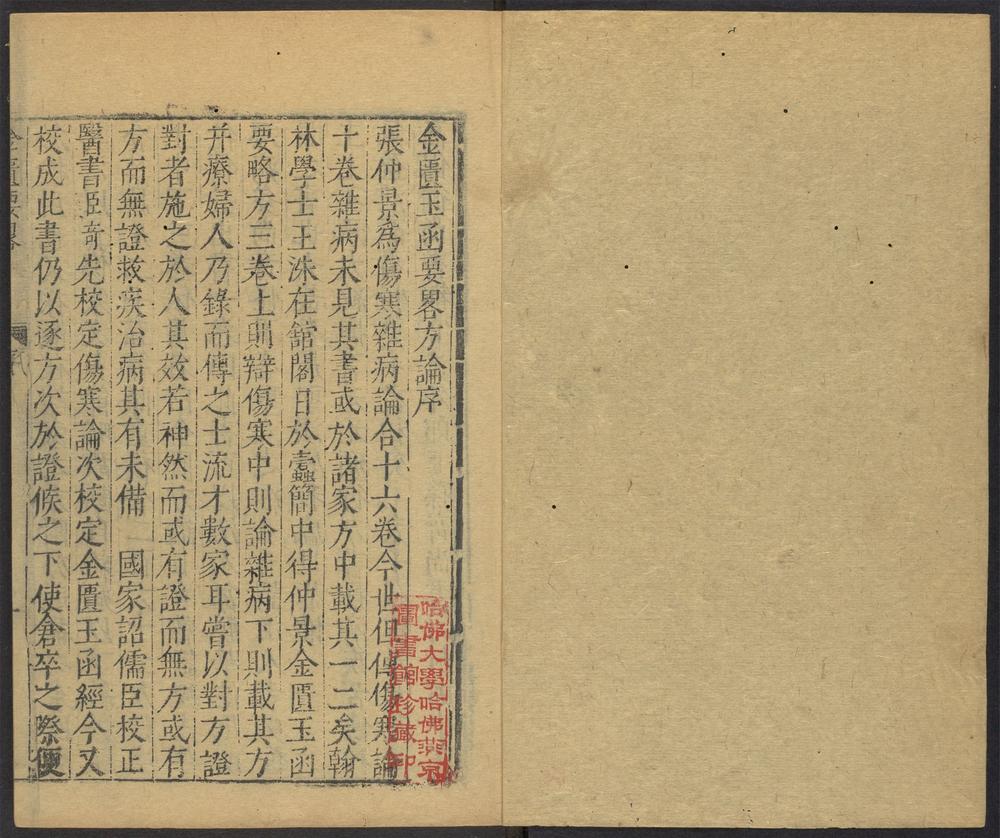 金匱玉函要畧方論序
張仲景為傷寒雜病論合十六卷今世但傳傷寒論
十卷雜病未見其書或於諸家方中載其一二矣翰
林學士王洙在舘閣日於蠹簡中得仲景金匱玉函
要略方三卷上則辯傷寒中則論雜病下則載其方
并療婦人乃錄而傳之士流才數家耳嘗以對方證
對者施之於人其效若神然而或有證而無方或有
方而無證救疾治病其有未備　國家詔儒臣校正
醫書臣竒先校定傷寒論次校定金匱玉函經今又
校成此書仍以逐方次於證候之下使倉卒之際便
金匱要畧
序
一
哈佛大學哈佛燕京
圖書館珍藏印